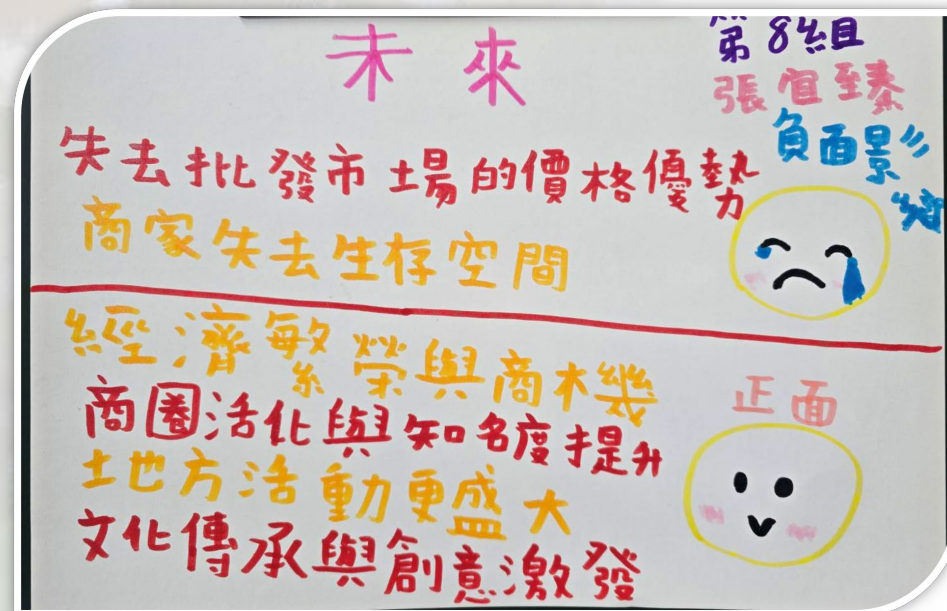 未來
第8組
張宜臻
負面影響
失去批發市場的價格優勢
商家失去生存空間
經濟繁榮與商機
正面
商圈活化與知名度提升
地方活動更盛大
文化傳承與創意激發